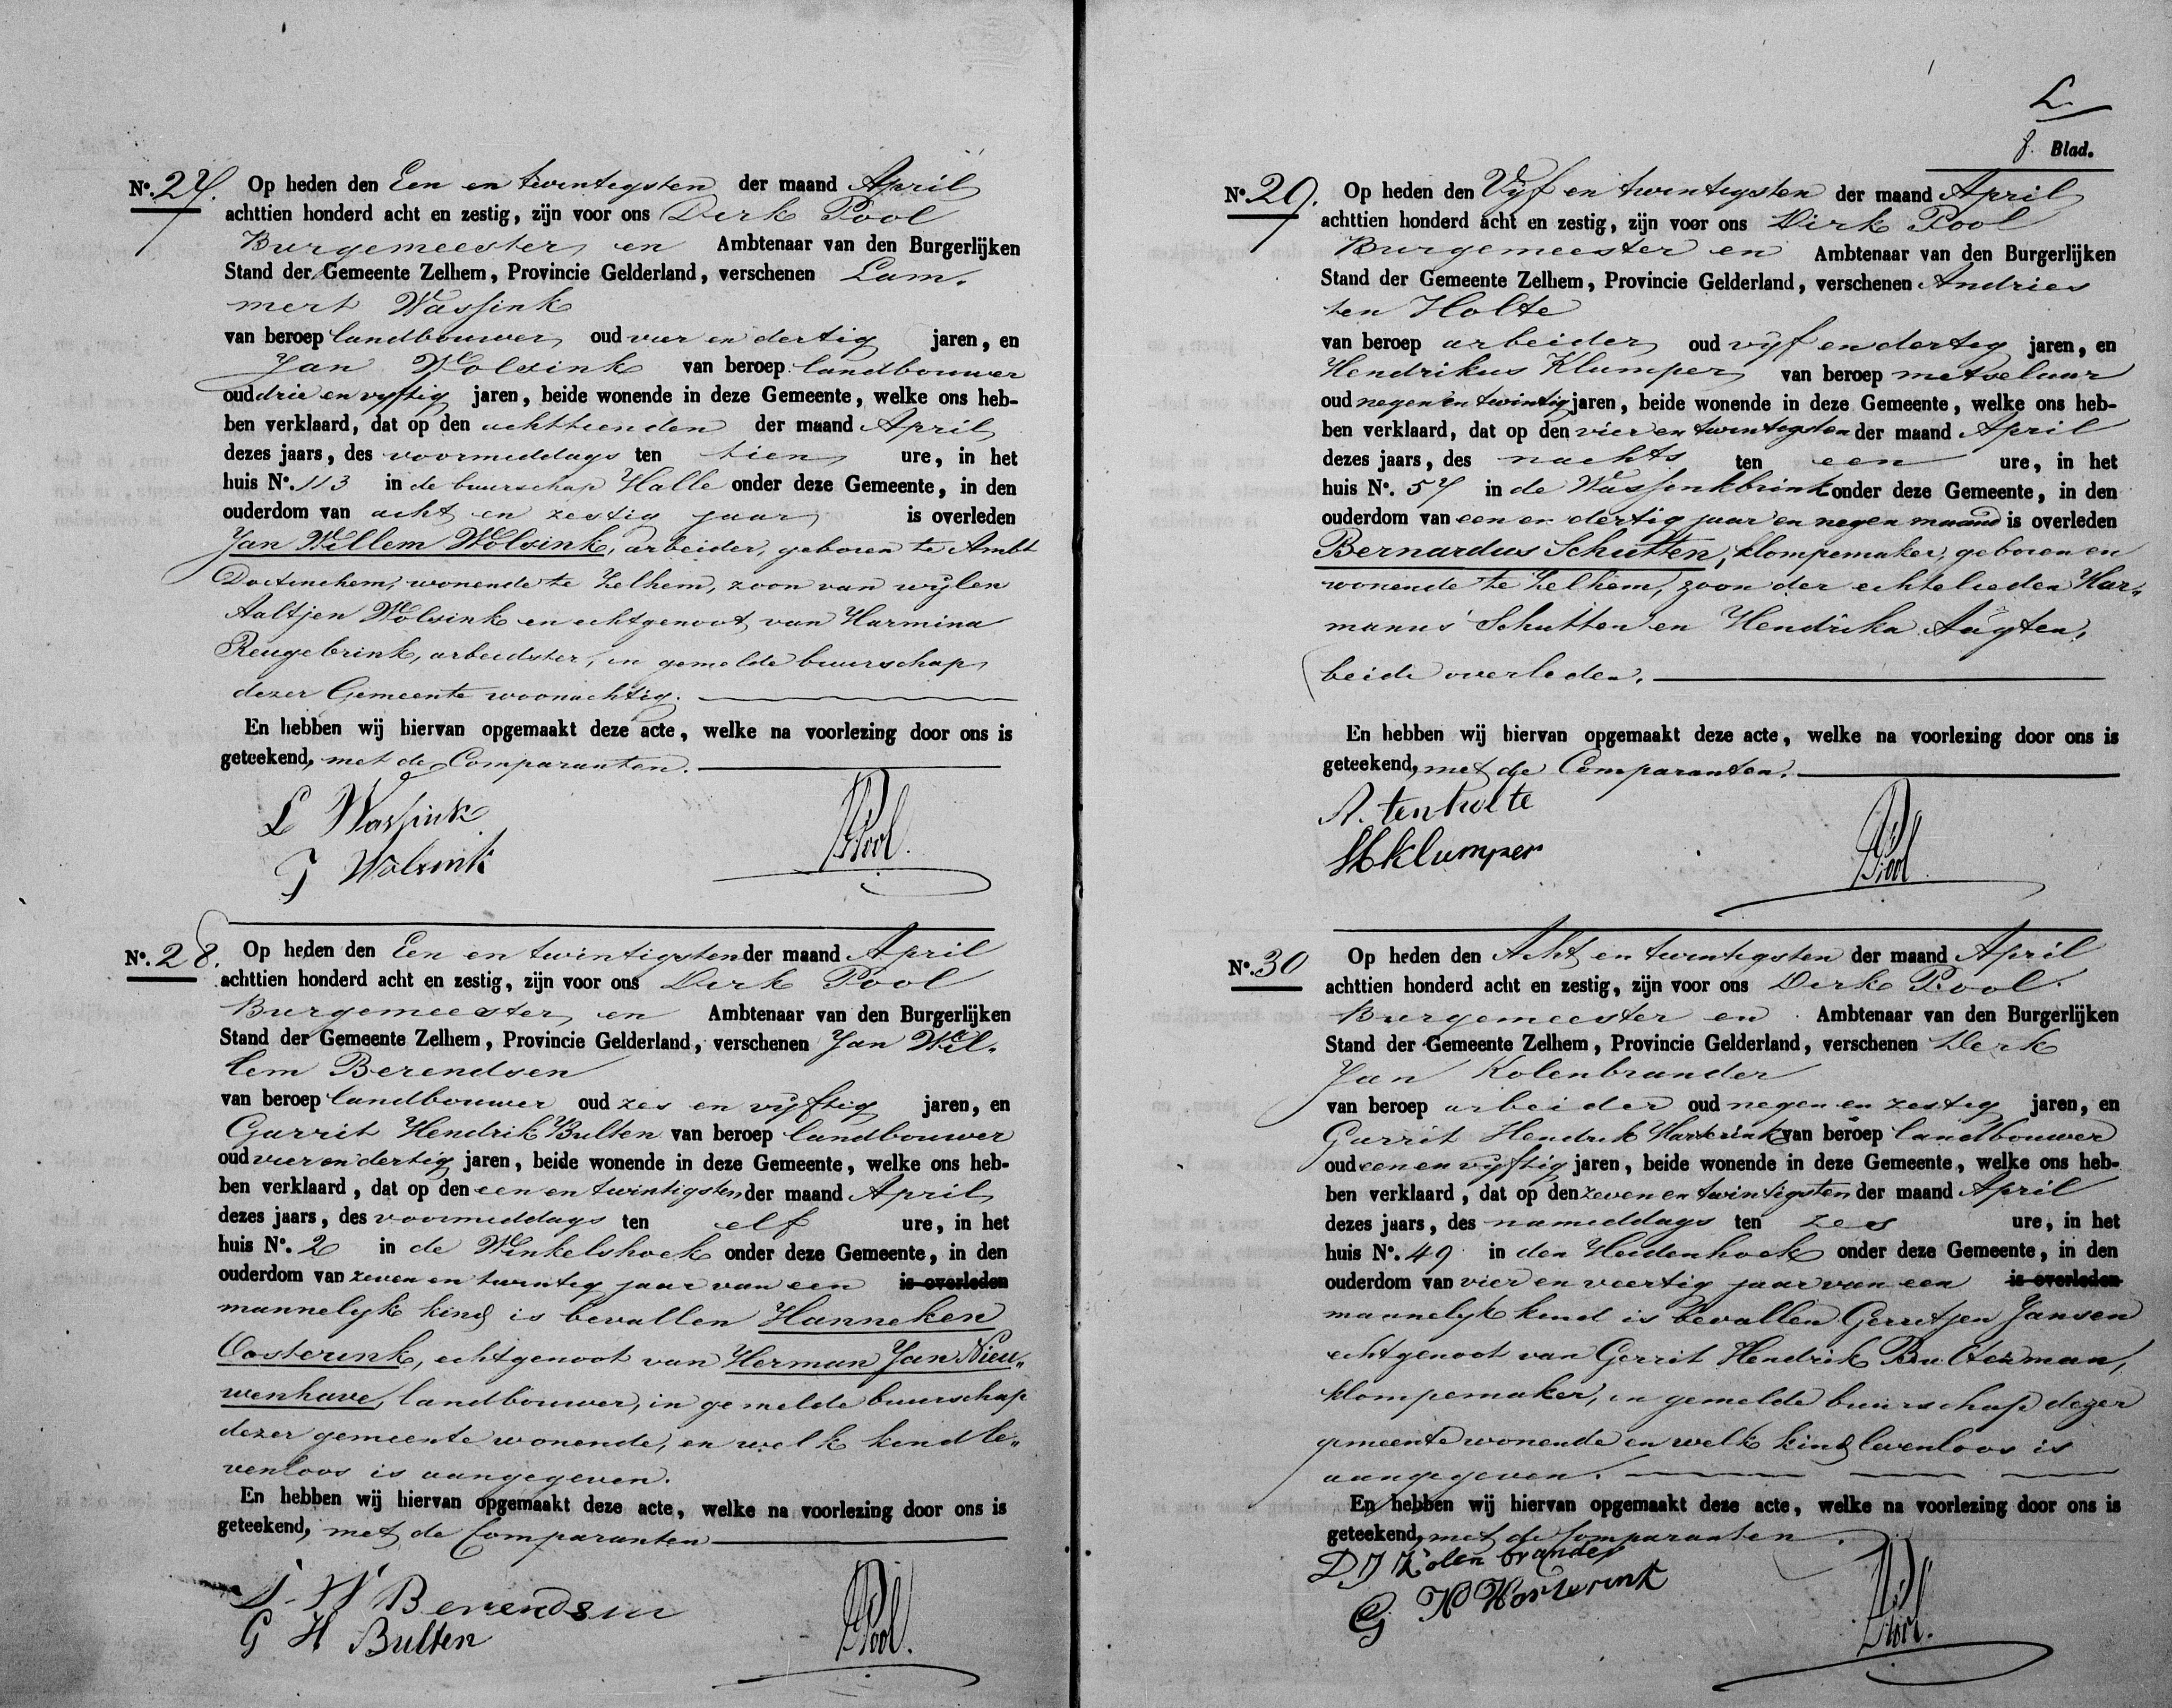 No. 27. Op heden den Een en twintigsten der maand April
achttien honderd acht en zestig, zijn voor ons Derk Pool
Burgemeester en Ambtenaar van den Burgerlijken
Stand der Gemeente Zelhem, Provincie Gelderland, verschenen Lam„
mert Wassink
van beroep landbouwer oud vier en dertig jaren, en
Jan Wolsink van beroep landbouwer
oud drie en vyftig jaren, beide wonende in deze Gemeente, welke ons heb-
ben verklaard, dat op den achttienden der maand April
dezes jaars, des voormiddags ten tien ure, in het
huis No. 113 in de buurschap Halle onder deze Gemeente, in den
ouderdom van acht en zestig jaar is overleden
Jan Willem Wolsink, arbeider, geboren te Ambt
Doetinchem, wonende te Zelhem, zoon van wijlen
Aaltjen Wolsink en echtgenoot van Harmina
Reugebrink, arbeidster, in gemelde buurschap
dezer Gemeente woonachtig.
En hebben wij hiervan opgemaakt deze acte, welke na voorlezing door ons is
geteekend, met de Comparanten.
L Wassink
J Wolsink
DPool.
No. 28. Op heden den Een en twintigsten der maand April
achttien honderd acht en zestig, zijn voor ons Derk Pool
Burgemeester en Ambtenaar van den Burgerlijken
Stand der Gemeente Zelhem, Provincie Gelderland, verschenen Jan Wil„
lem Berendsen
van beroep landbouwer oud zes en vyftig jaren, en
Garrit Hendrik Bulten van beroep landbouwer
oud vier en dertig jaren, beide wonende in deze Gemeente, welke ons heb-
ben verklaard, dat op den een en twintigsten der maand April
dezes jaars, des voormiddags ten elf ure, in het
huis No. 2 in de Winkelshoek onder deze Gemeente, in den
ouderdom van zeven en twintig jaar van een is overleden
mannelyk kind is bevallen Hanneken
Oosterink, echtgenoot van Herman Jan Nieu„
wenhave, landbouwer, in gemelde buurschap
dezer gemeente wonende, en welk kind le„
venloos is aangegeven.
En hebben wij hiervan opgemaakt deze acte, welke na voorlezing door ons is
geteekend, met de Comparanten
J. W Berendsen
G H Bulten
DPool.
8. Blad.
No. 29. Op heden den Vijf en twintigsten der maand April
achttien honderd acht en zestig, zijn voor ons Dirk Pool
Burgemeester en Ambtenaar van den Burgerlijken
Stand der Gemeente Zelhem, Provincie Gelderland, verschenen Andries
ten Holte
van beroep arbeider oud vijf en dertig jaren, en
Hendrikus Klumper van beroep metselaar
oud negen en twintig jaren, beide wonende in deze Gemeente, welke ons heb-
ben verklaard, dat op den vier en twintigsten der maand April
dezes jaars, des nachts ten een ure, in het
huis No. 57 in de Wassinkbrink onder deze Gemeente, in den
ouderdom van een en dertig jaar en negen maand is overleden
Bernardus Schutten, klompemaker, geboren en
wonende te Zelhem, zoon der echtelieden Har„
manus Schutten en Hendrika Augten,
beide overleden.
En hebben wij hiervan opgemaakt deze acte, welke na voorlezing door ons is
geteekend, met de Comparanten.
A. ten holte
HKlumper
DPool
No. 30 Op heden den Acht en twintigsten der maand April
achttien honderd acht en zestig, zijn voor ons Derk Pool
Burgemeester en Ambtenaar van den Burgerlijken
Stand der Gemeente Zelhem, Provincie Gelderland, verschenen Derk
Jan Kolenbrander
van beroep arbeider oud negen en zestig jaren, en
Garrit Hendrik Harterink van beroep landbouwer
oud een en vyftig jaren, beide wonende in deze Gemeente, welke ons heb-
ben verklaard, dat op den zeven en twintigsten der maand April
dezes jaars, des namiddags ten zes ure, in het
huis No. 49 in den Heidenhoek onder deze Gemeente, in den
ouderdom van vier en veertig jaar van een is overleden
mannelyk kind is bevallen Gerretjen Jansen
echtgenoot van Gerrit Hendrik Bulterman,
klompemaker, in gemelde buurschap dezer
gemeente wonende en welk kind levenloos is
aangegeven.
En hebben wij hiervan opgemaakt deze acte, welke na voorlezing door ons is
geteekend, met de Comparanten.
D J Kolenbrander
G H Harterink
DPool.